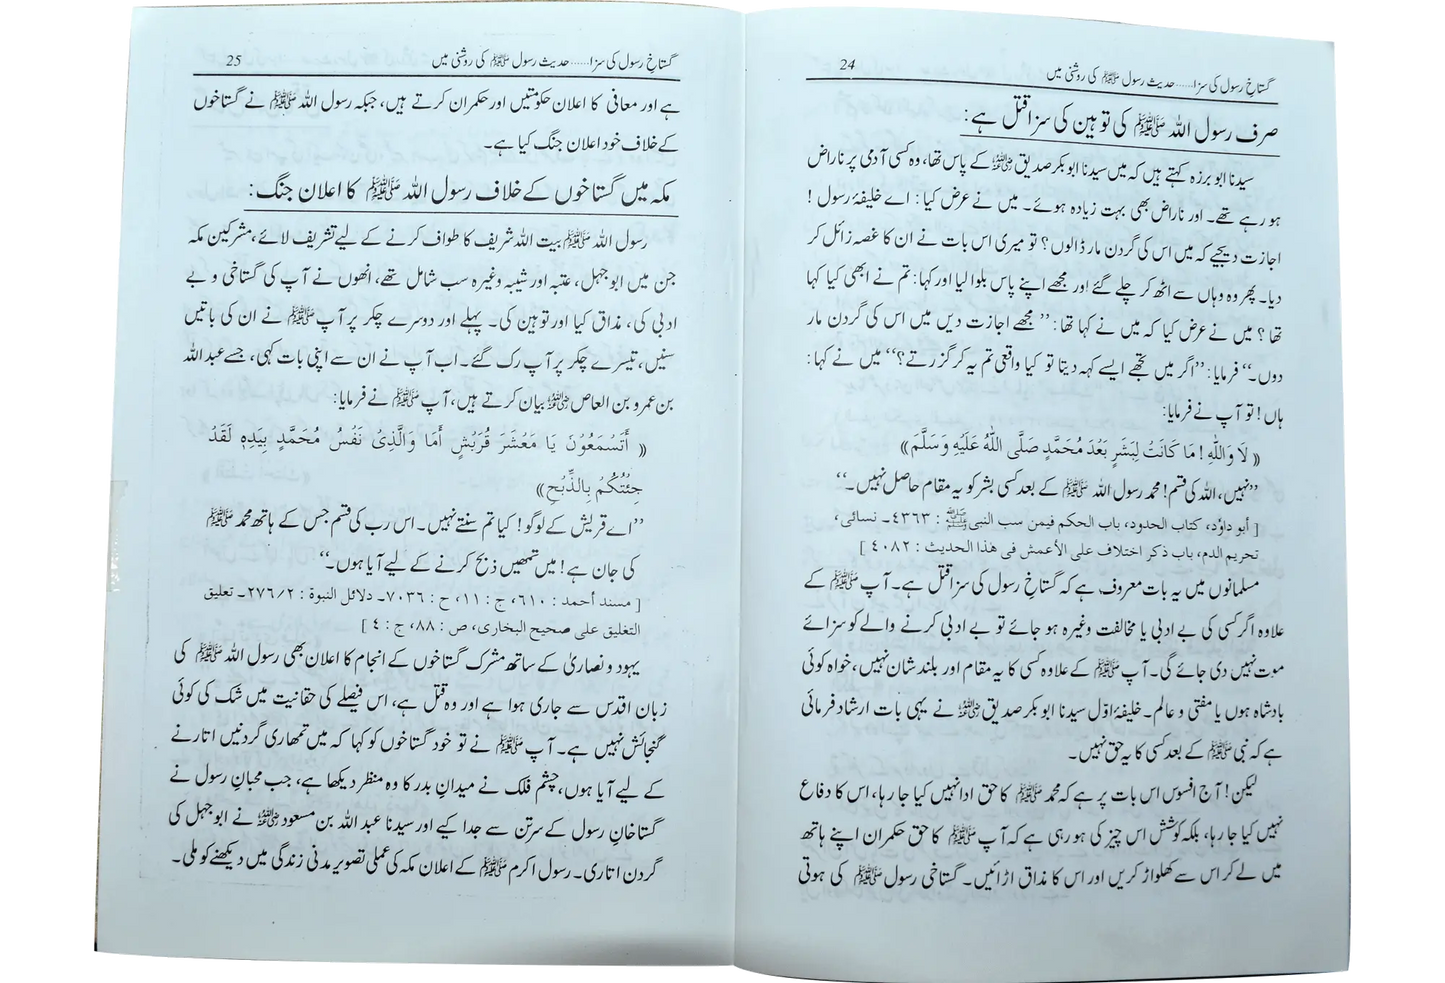 گستاخِ رسول کی سزا......حدیث رسول ﷺ کی روشنی میں 24
صرف رسول اللہ ﷺ کی توہین کی سزا قتل ہے:
سیدنا ابو برزہ کہتے ہیں کہ میں سیدنا ابوبکر صدیق رضی اللہ عنہ کے پاس تھا، وہ کسی آدمی پر ناراض
ہو رہے تھے۔ اور ناراض بھی بہت زیادہ ہوئے۔ میں نے عرض کیا: اے خلیفۂ رسول !
اجازت دیجیے کہ میں اس کی گردن مار ڈالوں؟ تو میری اس بات نے ان کا غصہ زائل کر
دیا۔ پھر وہ وہاں سے اٹھ کر چلے گئے اور مجھے اپنے پاس بلوا لیا اور کہا: تم نے ابھی کیا کہا
تھا؟ میں نے عرض کیا کہ میں نے کہا تھا: ’’مجھے اجازت دیں میں اس کی گردن مار
دوں۔‘‘ فرمایا: ’’اگر میں تجھے ایسے کہہ دیتا تو کیا واقعی تم یہ کر گزرتے؟‘‘ میں نے کہا:
ہاں! تو آپ نے فرمایا:
(( لَا وَاللّٰهِ ! مَا كَانَتْ لِبَشَرٍ بَعْدَ مُحَمَّدٍ صَلَّى اللّٰهُ عَلَيْهِ وَسَلَّمَ))
’’نہیں، اللہ کی قسم! محمد رسول اللہ ﷺ کے بعد کسی بشر کو یہ مقام حاصل نہیں۔‘‘
[ أبو داوٗد، کتاب الحدود، باب الحکم فیمن سب النبی ﷺ : ٤٣٦٣۔ نسائی،
تحریم الدم، باب ذکر اختلاف علی الأعمش فی ھذا الحدیث : ٤٠٨٢ ]
مسلمانوں میں یہ بات معروف ہے کہ گستاخِ رسول کی سزا قتل ہے۔ آپ ﷺ کے
علاوہ اگر کسی کی بے ادبی یا مخالفت وغیرہ ہو جائے تو بے ادبی کرنے والے کو سزائے
موت نہیں دی جائے گی۔ آپ ﷺ کے علاوہ کسی کا یہ مقام اور بلند شان نہیں، خواہ کوئی
بادشاہ ہوں یا مفتی و عالم۔ خلیفۂ اوّل سیدنا ابوبکر صدیق رضی اللہ عنہ نے یہی بات ارشاد فرمائی
ہے کہ نبی ﷺ کے بعد کسی کا یہ حق نہیں۔
لیکن! آج افسوس اس بات پر ہے کہ محمد ﷺ کا حق ادا نہیں کیا جا رہا، اس کا دفاع
نہیں کیا جا رہا، بلکہ کوشش اس چیز کی ہو رہی ہے کہ آپ ﷺ کا حق حکمران اپنے ہاتھ
میں لے کر اس سے کھلواڑ کریں اور اس کا مذاق اڑائیں۔ گستاخی رسول ﷺ کی ہوتی
گستاخِ رسول کی سزا......حدیث رسول ﷺ کی روشنی میں 25
ہے اور معافی کا اعلان حکومتیں اور حکمران کرتے ہیں، جبکہ رسول اللہ ﷺ نے گستاخوں
کے خلاف خود اعلان جنگ کیا ہے۔
مکہ میں گستاخوں کے خلاف رسول اللہ ﷺ کا اعلان جنگ:
رسول اللہ ﷺ بیت اللہ شریف کا طواف کرنے کے لیے تشریف لائے، مشرکین مکہ
جن میں ابوجہل، عتبہ اور شیبہ وغیرہ سب شامل تھے، انھوں نے آپ کی گستاخی و بے
ادبی کی، مذاق کیا اور توہین کی۔ پہلے اور دوسرے چکر پر آپ ﷺ نے ان کی باتیں
سنیں، تیسرے چکر پر آپ رک گئے۔ اب آپ نے ان سے اپنی بات کہی، جسے عبد اللہ
بن عمرو بن العاص رضی اللہ عنہ بیان کرتے ہیں، آپ ﷺ نے فرمایا:
(( أَتَسْمَعُوْنَ يَا مَعْشَرَ قُرَيْشٍ أَمَا وَالَّذِىْ نَفْسُ مُحَمَّدٍ بِيَدِهٖ لَقَدْ
جِئْتُكُمْ بِالذِّبْحِ))
’’اے قریش کے لوگو! کیا تم سنتے نہیں۔ اس رب کی قسم جس کے ہاتھ محمد ﷺ
کی جان ہے! میں تمھیں ذبح کرنے کے لیے آیا ہوں۔‘‘
[ مسند أحمد : ٦١٠، ج : ١١، ح : ٧٠٣٦۔ دلائل النبوة : ٢٧٦/٢۔ تعلیق
التغلیق علی صحیح البخاری، ص : ٨٨، ج : ٤ ]
یہود و نصاریٰ کے ساتھ مشرک گستاخوں کے انجام کا اعلان بھی رسول اللہ ﷺ کی
زبان اقدس سے جاری ہوا ہے اور وہ قتل ہے، اس فیصلے کی حقانیت میں شک کی کوئی
گنجائش نہیں ہے۔ آپ ﷺ نے تو خود گستاخوں کو کہا کہ میں تمھاری گردنیں اتارنے
کے لیے آیا ہوں، چشم فلک نے میدانِ بدر کا وہ منظر دیکھا ہے، جب محبانِ رسول نے
گستاخانِ رسول کے سر تن سے جدا کیے اور سیدنا عبد اللہ بن مسعود رضی اللہ عنہ نے ابوجہل کی
گردن اتاری۔ رسول اکرم ﷺ کے اعلان مکہ کی عملی تصویر مدنی زندگی میں دیکھنے کو ملی۔